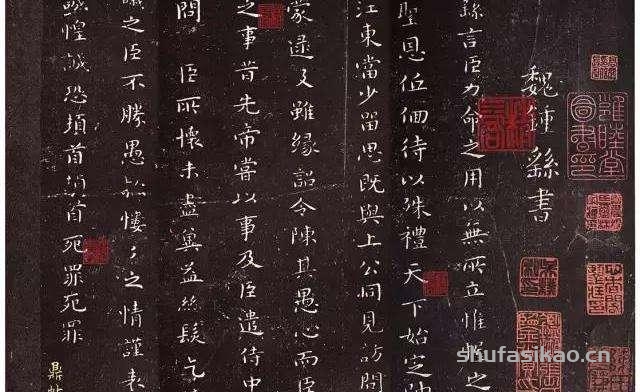 魏鍾繇書
繇言臣力命之用以無所立惟幄之
聖恩低佪待以殊禮天下始定
江東當少留思既與上公同見訪問
蒙逮及雖緣詔令陳其愚心而臣
之事昔先帝嘗以事及臣遣侍中
問 臣所懷未盡奚益絲髮乞
議之臣不勝愚款慺〻之情謹表
誠惶誠恐頓首頓首死罪死罪
shufasikao.cn